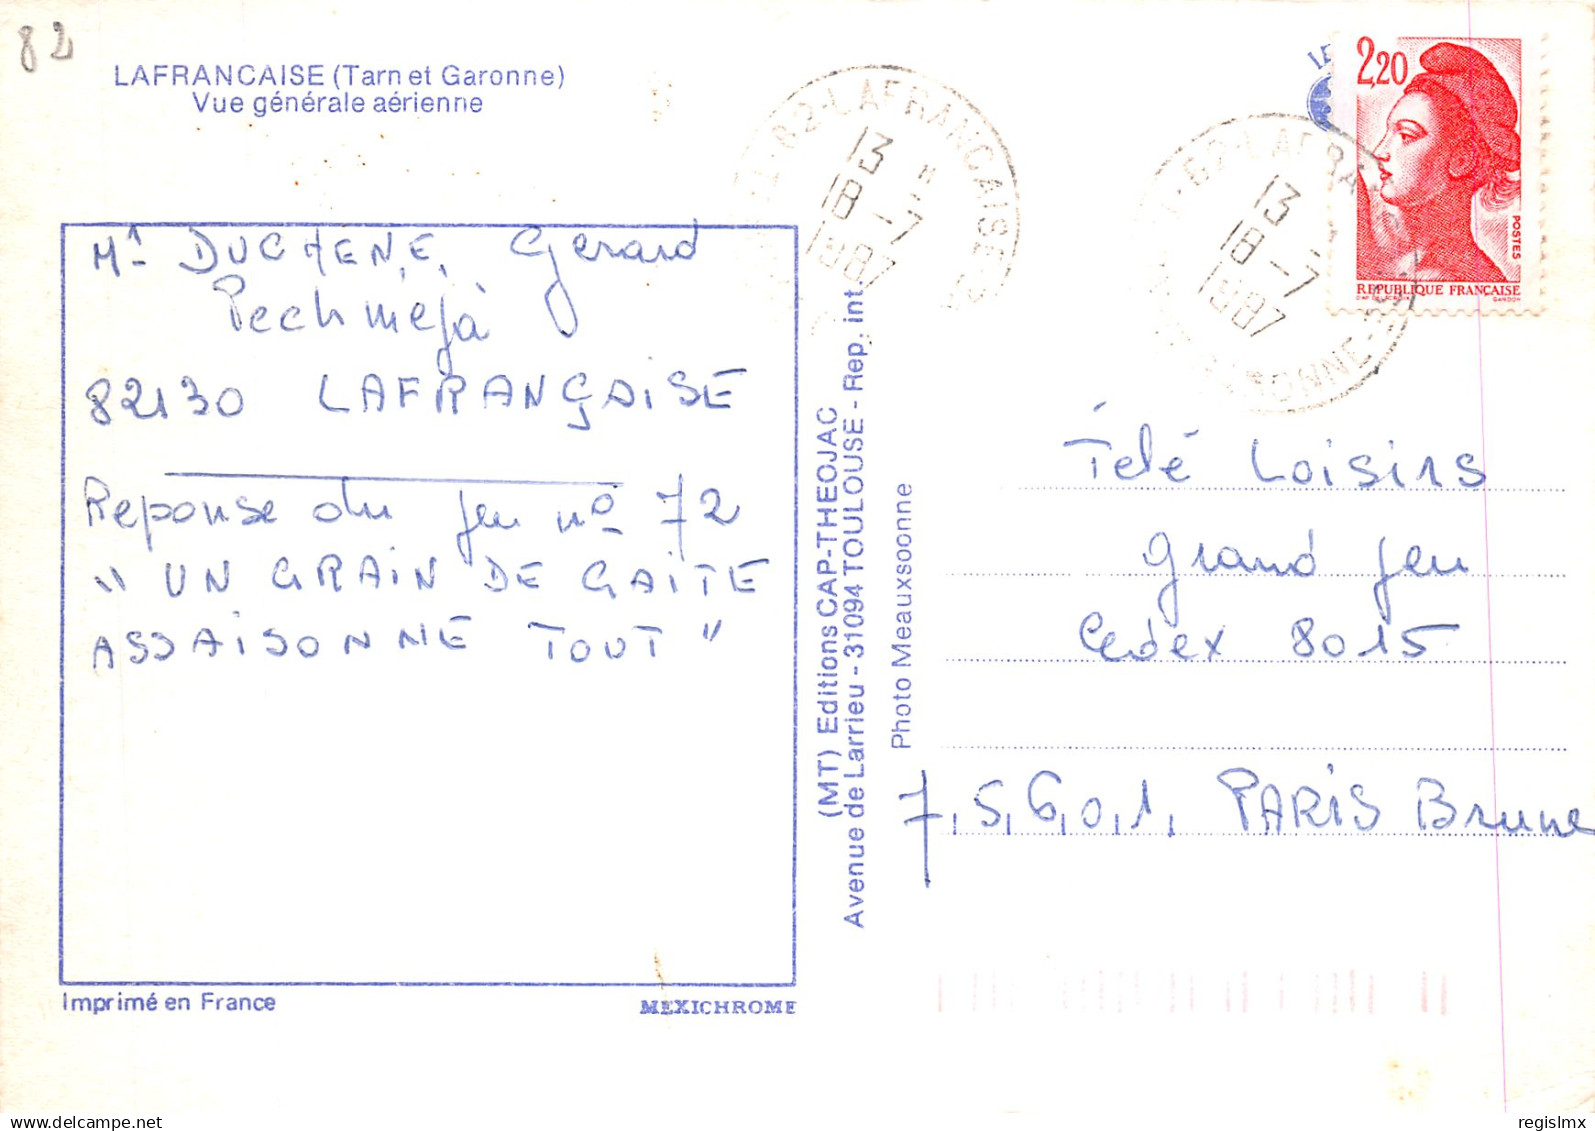 82
LAFRANCAISE (Tarn et Garonne)
Vue générale aérienne
Mr DUCHENE Gerard
Pechmeja
82130 LAFRANÇAISE
Reponse du jeu nº 72
" UN GRAIN DE GAITE
ASSAISONNE TOUT "
Imprimé en France
MEXICHROME
(MT) Editions CAP-THEOJAC
Avenue de Larrieu - 31094 TOULOUSE - Rep. int.
Photo Meauxsoonne
82-LAFRANCAISE
13 H
18 -7
1987
82-LAFRANCAISE
13
18 -7
1987
GARONNE
LE
2,20
POSTES
REPUBLIQUE FRANÇAISE
GANDON
Télé Loisirs
grand jeu
Cedex 8015
7,5,6,0,1, PARIS Brune
regislmx